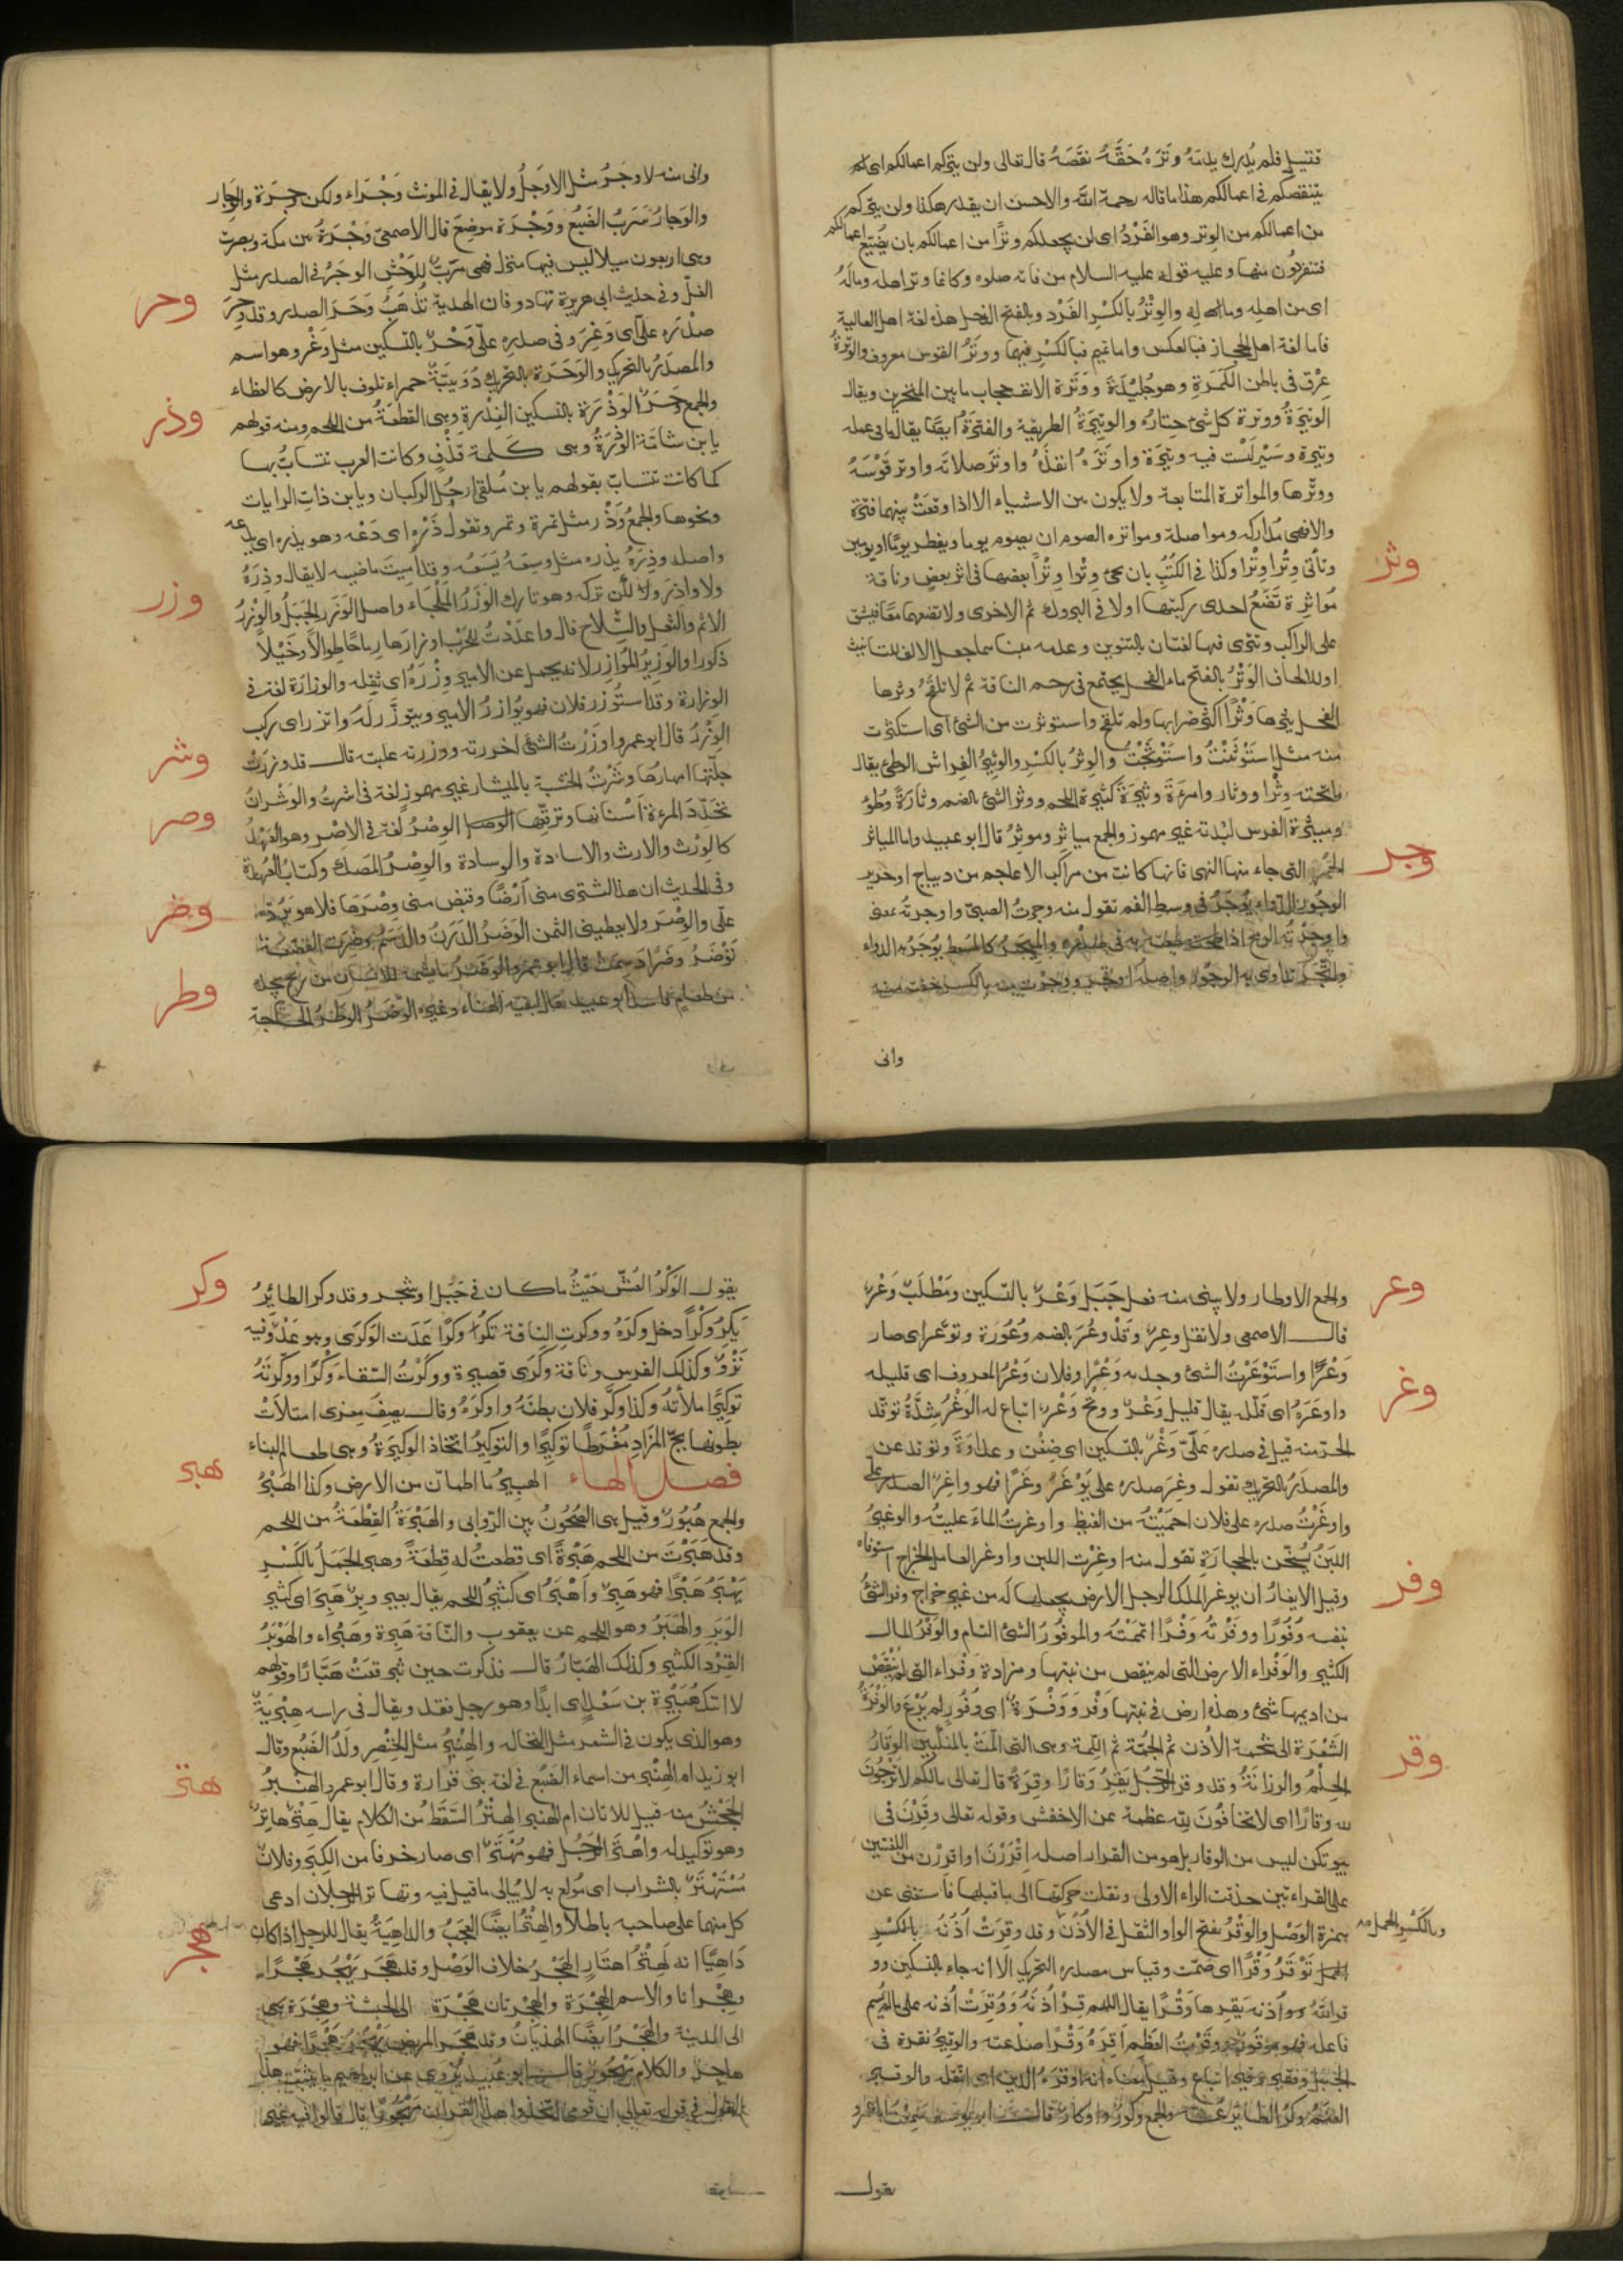 قتيل فلم يُدرك بدمهُ وتَرَهُ حَقَّهُ نقَصَهُ قال تعالى ولن يتركم اعمالكم اى لم
يتنقصكم فى اعمالكم هذا ما قاله رحمة الله والاحسن ان يقدر هكذا ولن يتركم
من اعمالكم من الوتر وهو الفَرْدُ اى لن يجعلكم وترًا من اعمالكم بان يُضَيّع اعمالكم
فتنفردون منها وعليه قوله عليه السلام من فاته صلوة وكانما وتر اهله ومالَهُ
اى من اهله وماله والوِتْرُ بالكسْرِ الفَرْد وبالفتح الذحل هذه لغة اهل العالية
فاما لغة اهل الحجاز فبالعكس واما تميم فبالكسْرِ فيها ووتَرُ القوس معروف والوَتَرةُ
عِرْق فى باطن الكَمَرَةِ وهو جُلَيْدَةٌ ووَتَرة الانف حجاب ما بين المنخرين ويقال
الوتيرَةُ ووترة كل شئ حِتارُه والوتيرَةُ الطريقة والفَترَةُ ايضًا يقال ما فى عمله
وتيرة وسَيْر لَيْست فيه وتيرة واوتَرَهُ افذَّهُ واوتَر صلاته واوتر قَوْسَهُ
ووتّرها والمواترة المتابعة ولا يكون بين الاشياء الا اذا وقعَتْ بينهما فتْرة
والا فهى مُداركة ومواصلة ومواتره الصوم ان يصوم يوما ويفطر يومًا او يومين
وتأتى وِتْرًا وِتْرًا وكذا فى الكتُبِ بان تجئ وِتْرا وِتْرًا بعضها فى اثر بعض وناقة
مُواتِرة تضَعُ احدى ركبتيها اولا فى البروك ثم الاخرى ولا تضعهما معًا فيشق
على الراكب وتترى فيها لغتان بالتنوين وعدمه مبناهما جعل الالف للتانيث
او للالحاق الوَثْرُ بالفتح ماء الفحل يجتمع فى رحم الناقة ثم لا تلقَحُ وثرها
الفحل يثرها وَثْرًا اكثر ضرابها ولم تلقح واستوثرت من الشئ اى استكثرت
منه مثل استَوْثَنْتُ واستَوْثجْتُ والوِثرُ بالكسْرِ والوثيرُ الفِراش الوطئ يقال
ما تحته وِثْر ووثار وامرءَة وثيرَة كثيرة اللحم ووثر الشئ بالضم وثارَةً وطُؤ
وميثرة الفرس لِبْدته غير مهموز والجمع مياثر وموَاثِرُ قال ابو عبيد واما المياثر
الحُمرُ التى جاء منها النهى فانها كانت من مراكب الاعاجم من ديباج او حرير
الوجُورُ الدواء يُوجَرُ فى وسط الفم تقول منه وجرتُ الصبىّ واوجرتُه بمعنى
واوجَرْتُه الرمح اذا طعنته به فى صدره والميجَرُ كالمسعط يُوجَرُ به الدواء
واتّجَرَ تداوى به الوجور واصله اوتجر ووجرت منه بالكسر خفت منه
وانى
وثر
وجر
وانى منه لاوجَرُ مثل الاوجَلُ ولا يقال فى المونث وَجْرَاء ولكن وجِرَة والوِجار
والوَجارُ سَرَبُ الضَبُع ووَجْرَة موضِعَ قال الاصمعىّ وَجْرَةُ بين مكة وبصرة
وهى اربعون ميلا ليس فيها منزل فهى مَرَبٌّ للوَحْشِ الوَحَرُ فى الصدر مثل
الغلّ وفى حديث ابى هريرة تهادوا فان الهدية تُذهَبُ وَحَرَ الصدر وقد وَحِرَ
صدْرَه علىّ اى وَغِرَ وفى صدره علىّ وَحْرٌ بالتسكين مثل وَغْر وهو اسم
والمصدَرُ بالتحريك والوَحَرَة بالتحريك دُوَيبّة حمراء تلزق بالارض كالعظاء
والجمع وَحَرٌ الوَذْرَة بالتسكين الفِدْرة وهى القطعَةُ من اللحم ومنه قولهم
يا بن شامّة الوَذْرَةُ وهى كلمة قَذْفٍ وكانت العرب تتسابُّ بها
كما كانت تتسابّ بقولهم يا بن مُلقى ارحُل الركبان ويا بن ذات الرايات
ونحوها والجمعُ وَذْر مثل تمرة وتمر وتقول ذَرْه اى دَعْه وهو يذره اى يدعه
واصله وذِرَهُ يذره مثل وسِعَهُ يَسَعُه وقد اُميتَ ماضيه لا يقال وذِرَهُ
ولا واذِر ولكن تركه وهو تارك الوَزَرُ المَلْجَاء واصل الوَزَر الجبَلُ والوِزْرُ
الاثم والثقل والسّلاح قال واعدَدْتُ للحرب اوزارَها رماحًا طِوالا وخَيْلاً
ذكورا والوَزِيرُ المُوَازِر لانه يحمل عن الامير وِزْرَهُ اى ثقِله والوزارَة لغت فى
الوَزارة وقد استُوزر فلان فهو يُوَازِرُ الامير ويتوزَّر لَهُ واتزر اى ركب
الوِزْرَ قال ابو عمرو اوزَرْتُ الشئ احرزته ووزرته غلبته قال قد وزرَتْ
جلّتها امهارُها وشَرْتُ الخشبة بالميشار غير مهموز لغة فى اشرتُ والوَشْر ان
تحَدّد المرءة اسْنانها وترققها الوِصْرُ لغة فى الاصْر وهو العَهْدُ
كالوِرْث والارث والاسادة والوسادة والوِصْرُ الصك وكتابُ العُهدة
وفى الحديث ان هذا اشترى منى اَرْضًا وقبض منى وِصْرَها فلا هو يَرُدّ
علَى الوِصْر ولا يعطينى الثمن الوَضَرُ الدَرَنُ والدَسَمُ وضِرَت القصْعَة
تَوْضَرُ وضَرًا دسِمَتْ قال ابو عمرو الوَضَرُ ما يشمه الانسان من ريح يجده
من طعام فاسد ابو عبيد يقال لبقية الهناء وغيره الوَضَرُ الوَطَرُ الحاجة
وحر
وذر
وزر
وشر
وصر
وضر
وطر
والجمع الاوطار ولا يبنى منه فعل جَبَل وَعْرٌ بالتسكين ومَطْلَبٌ وَعْرٌ
قال الاصمعى ولا تقل وعِرٌ وَقَدْ وعُرَ بالضم وُعُورَة وتوعّر اى صار
وَعْرًا واستَوْعَرْتُ الشئ وجده وَعْرًا وفلان وَعْرُ المعروف اى قليله
واوعَرَهُ اى قلّله يقال قليل وَعْرٌ ووتحٌ وَعْرٌ اتباع له الوَغْرَةُ شدَّةُ توقّد
الحرّ منه قيل فى صدره علَىّ وَغْرٌ بالتسكين اى ضِغْن وعداوَة وتوقد من
والمصدَرُ بالتحريك تقول وغِرَ صدره على يَوْغَرُ وغَرًا فهو واغِرُ الصدر علىّ
واوغَرْتُ صدره على فلان احميْتُه من الغيظ واوغرتُ الماءَ غليتُه والوغيرُ
اللبَنُ يُسَخّن بالحجارَة تقول منه اوغرْت اللبن واوغر العامل الخراج استوفاه
وقيل الايغارُ ان يوغر الملك الرجل الارض يجعلها لَه من غير خراج وفر الشئُ
بنفسه وُفُورًا ووفَرْتُه وَفْرًا اتممْتُه والموفُورُ الشئ التام والوَفْرُ المال
الكثير والوَفْراء الارض التى لم ينقص من نبتها ومزادة وَفراء التى لم يَنْقُصْ
من اديمها شئ وهذه ارض فى نبتها وَفْر وَوَفْرَةٌ اى وُفُور لم يُرْعَ والوَفْرَةُ
الشَعْرَة الى شحمة الأُذن ثم الجُمَّة ثم اللِمة وهى التى اَلَمّتْ بالمنكبين الوَقارُ
الحِلْمُ والرزانَةُ وقد وقر الرّجُل يَقِرُ وَقارًا وقِرَةً قال تعالى ما لكم لا تَرْجُونَ
لله وقارًا اى لا تخافُون للهِ عظمة عن الاخفش وقوله تعالى وقَرْنَ فى
بيوتكن ليس من الوقار بل هو من القرار اصله اِقْرَرْنَ او اقرِرْن من اللغتين
على القراءتين حذفت الراء الاولى ونقلت حركتها الى ما قبلها فاستغنى عن
همزة الوَصْل والوَقْرُ بفتح الواو الثقل فى الاُذُن وقد وقِرَتْ اُذُنُه بالكسْرِ
تَوْقَرُ وَقْرًا اى صمّت وقياس مصدره التحريك الا انه جاء بالتسكين وو
قر اللهُ اُذنه يَقِرها وَقْرًا يقال اللهم قِرْ اُذُنَهُ وَوُقِرَتْ اُذنه على ما لم يُسمّ
فاعله فهو مَوْقُورَة ووقَرْتُ العَظْم اَقِرُهُ وَقْرًا صدعته والوقيرُ نقرة فى
الجبَل وفقير وقير اتباع وقيل معناه انه اوقَرَهُ الدين اى اثقله والوقير
الغَنَمُ وكْرُ الطائر عُشّه والجمع وكُورٌ واوكارٌ قال ابو يوسف سمِعْتُ ابا عمرو
وبالكَسْرِ الحمل صح
يقول
وعر
وغر
وفر
وقر
يقول الوَكْرُ العُشّ حَيْثُ ما كان فى جَبَل او شجر وقد وكر الطائِرُ
يَكِرُ وَكْرًا دخل وكرَهُ ووكرت الناقة تكِرُ وكْرًا عَدَت الوَكَرى وهو عَدْوٌ فيه
نَزْوٌ وكذلك الفرس وناقة وكَرَى قصيرة ووكَرْتُ السّقاءَ وَكْرًا ووكّرتَهُ
توكيرًا ملأتُه وكذا وكّر فلان بطنَهُ واوكرَهُ وقال يصِفُ مِعزى امتلأتْ
بطونها نجّ المزادِ مُفْرَطًا توكيرًا والتوكِيرُ اتخاذ الوكيرَةُ وهى طعام البناء
فصل الهاء الهبِيرُ ما اطمأنّ من الارض وكذا الهَبْرُ
والجمع هُبُورٌ وقيل هى الصُّحُونُ بين الرّوابى والهَبْرَةُ القِطعَة من اللحم
وقد هَبَرْتَ من اللحم هَبْرةً اى قطعتُ له قِطعَةً وهبِر الجَمَلُ بالكَسْرِ
يَهْبَرُ هَبَرًا فهو هَبِرٌ واَهْبَرُ اى كثيرُ اللحم يقال بعير وبِرٌ هَبِرٌ اى كثير
الوَبَرِ والهَبَرُ وهو اللحم عن يعقوب والناقة هَبِرة وهَبْراء والهَوْبَرُ
القِرْد الكثير وكذلك الهَبّارُ قال فذكرت حين تبرقعَتْ هَبّارًا وقولهم
لا اتيك هُبَيْرة بن سَعْدٍ اى ابدًا وهو رجل فقد ويقال فى راسه هِبْرِيَةٌ
وهو الذى يكون فى الشعر مثل النخالة والهِنْبِرُ مثل الخِنْصِر ولَدُ الضَبُع وقال
ابو زيد ام الهِنْبِر من اسماء الضَبُع فى لغة بنى فزارة وقال ابو عمرو الهِنْبِرُ
الجَحْشُ منه قيل للاتان ام الهِنبر الهِتْرُ السَقَطُ من الكلام يقال هِتْرٌ هاتِرٌ
وهو توكيد له واُهْتِرَ الرَجُل فهو مُهْتَرٌ اى صار خرفا من الكِبَر وفلان
مُسْتَهْتَرٌ بالشراب اى مُولَع به لا يُبالى ما قيل فيه وتهاتر الرجلان ادعى
كل منهما على صاحبه باطلا والهِتْرُ ايضًا العَجَبُ والداهِيَةُ يقال للرجل اذا كان
دَاهِيًا انه لَهِتْرُ اَهتارٍ الهَجْرُ خلاف الوَصْل وقد هَجَر يَهْجُر هَجْرًا
وهِجْرانا والاسم الهِجْرَة والهِجْرَتان هِجْرَة الى الحبشة وهِجْرَة
الى المدينة والهَجْرُ ايضًا الهذيَانُ وقد هَجَر المريض يَهْجُرُ هَجْرًا فهو
هاجِرٌ والكلام مَهْجُورٌ قال ابو عُبيد يُروى عن ابراهيم ما يثبت هذا
القول فى قوله تعالى ان قومى اتخذوا هذا القرآن مَهْجُورًا قال قالوا فيه غير
وكر
هبر
هتر
هجر